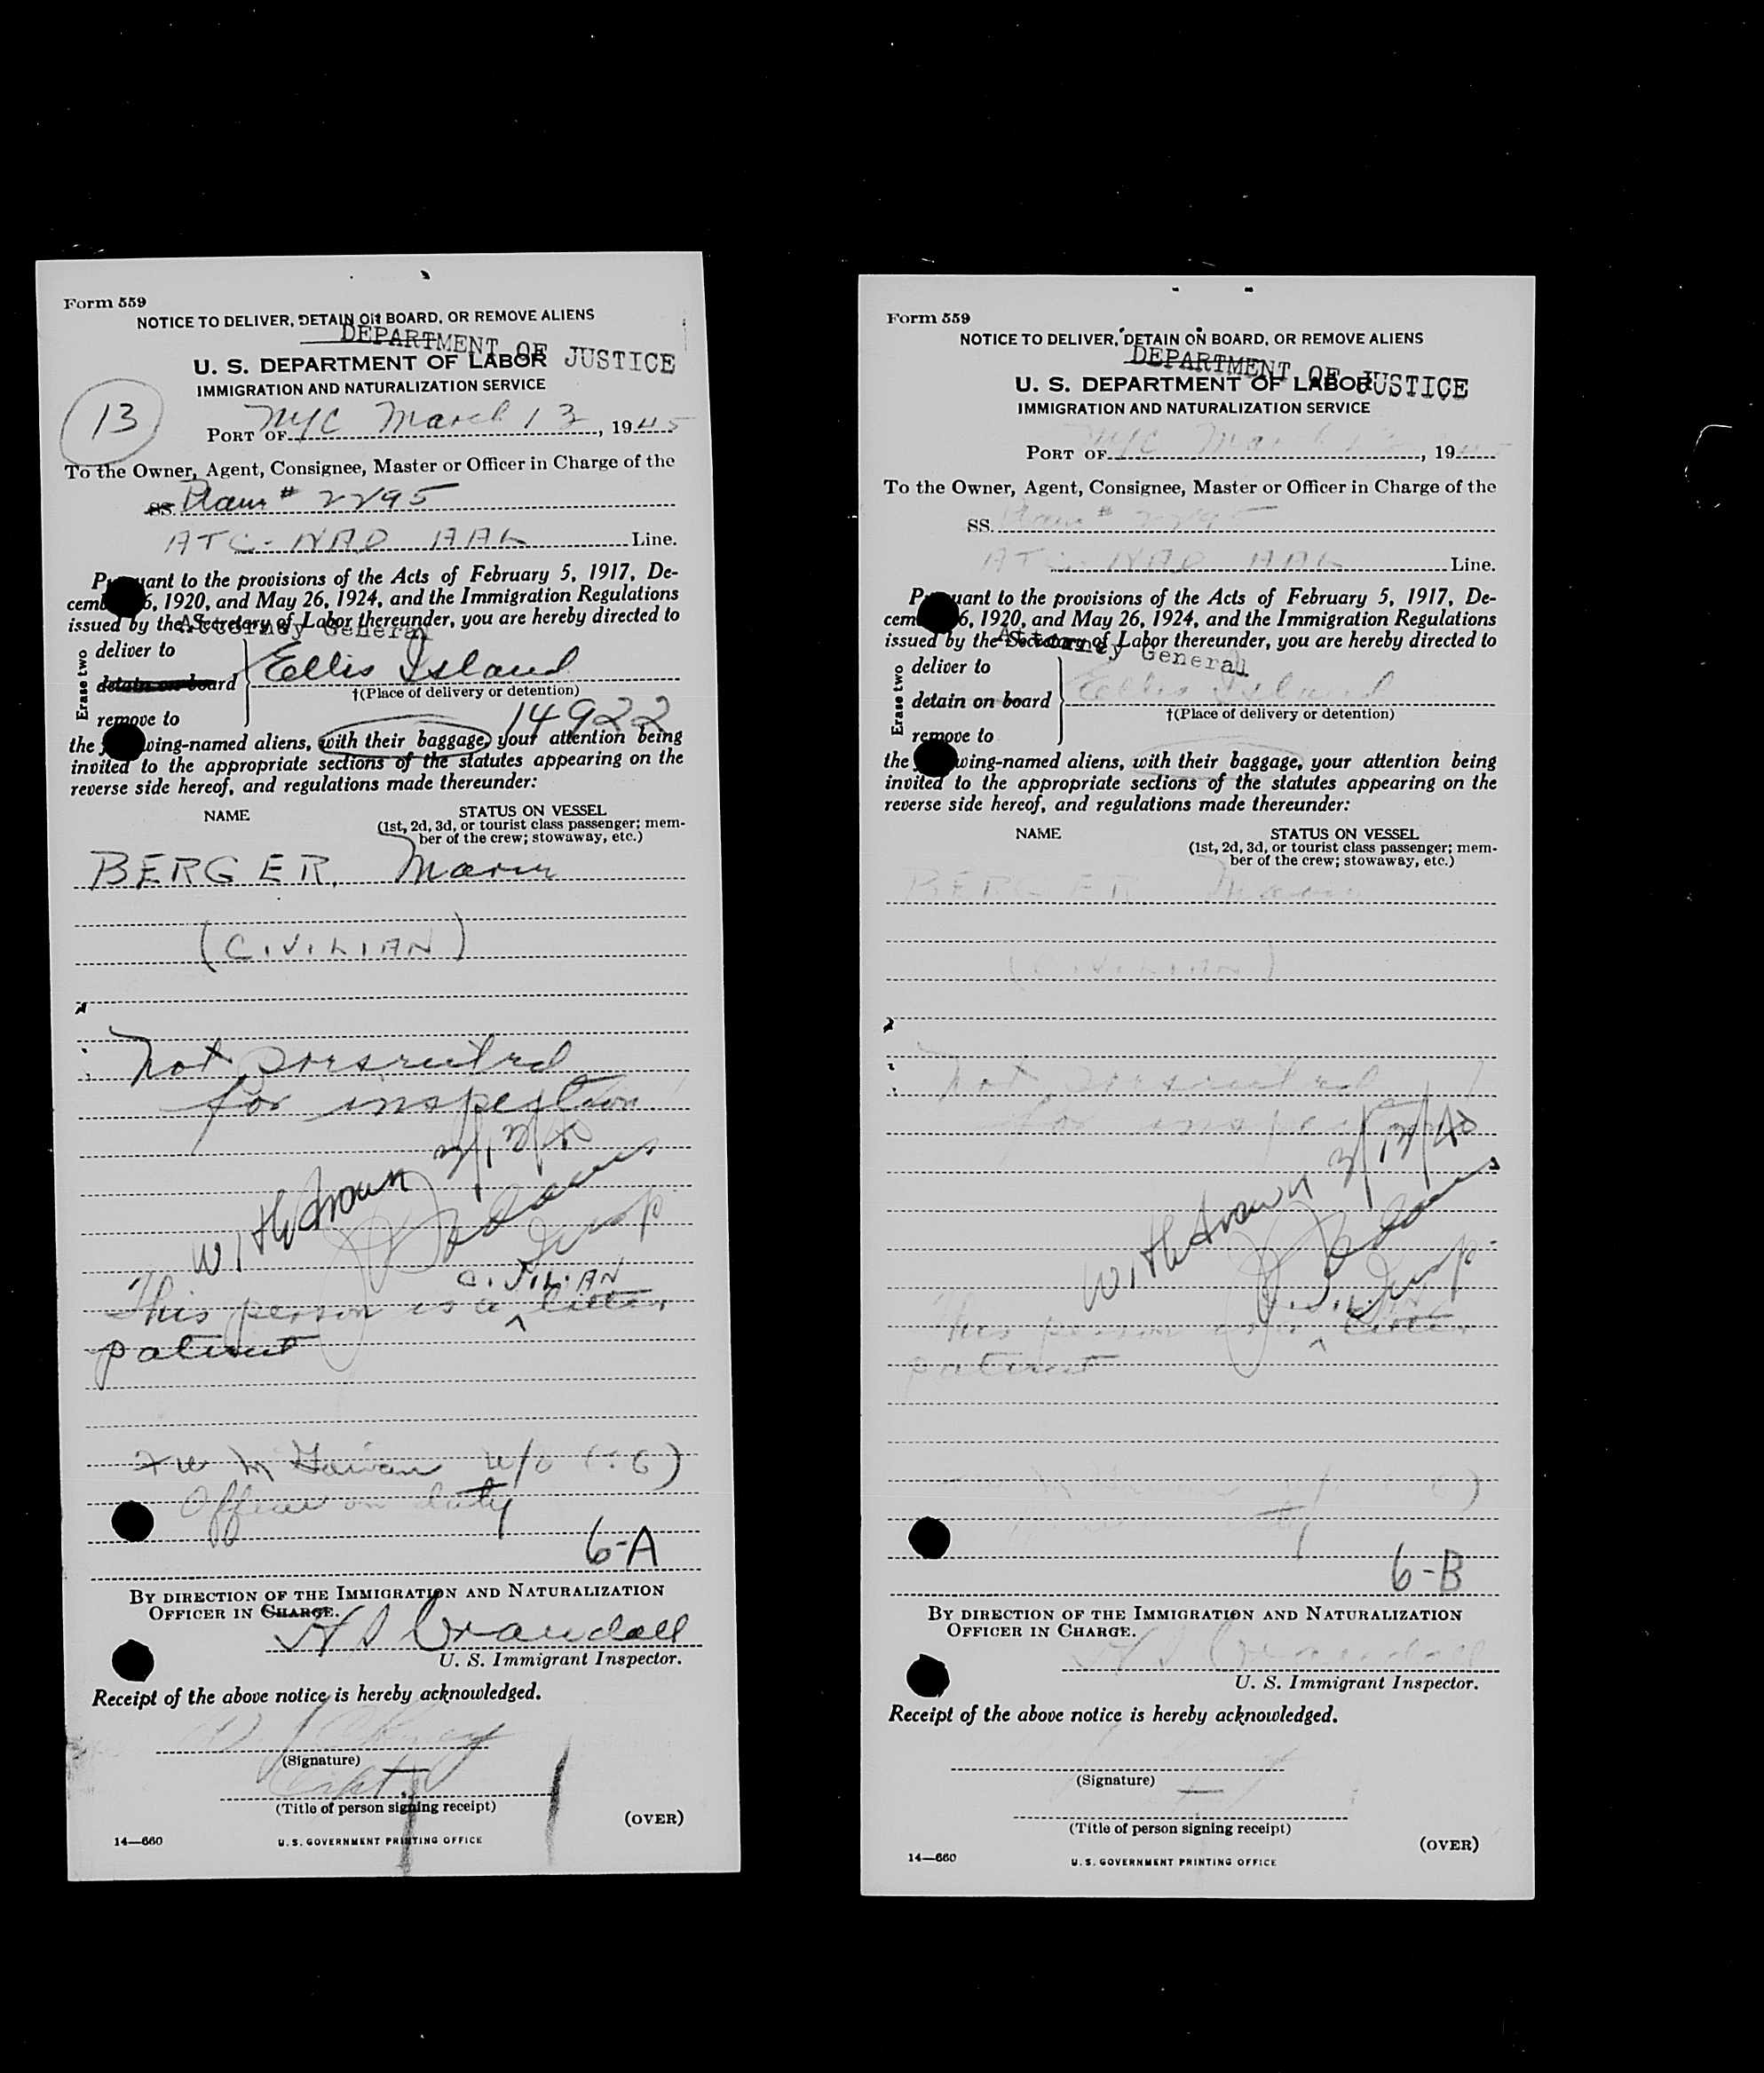 Form 559
NOTICE TO DELIVER, DETAIN ON BOARD, OR REMOVE ALIENS
DEPARTMENT OF JUSTICE
U. S. DEPARTMENT OF LABOR
IMMIGRATION AND NATURALIZATION SERVICE
13
PORT OF NYC March 13, 1945
To the Owner, Agent, Consignee, Master or Officer in Charge of the
SS. # 2295
ATC-NAD AAL Line.
Pursuant to the provisions of the Acts of February 5, 1917, De-
cember 26, 1920, and May 26, 1924, and the Immigration Regulations
issued by the Secretary of Labor thereunder, you are hereby directed to
Attorney General
Erase two
deliver to
detain on board
remove to
Ellis Island
†(Place of delivery or detention)
14922
the following-named aliens, with their baggage, your attention being
invited to the appropriate sections of the statutes appearing on the
reverse side hereof, and regulations made thereunder:
NAME
STATUS ON VESSEL
(1st, 2d, 3d, or tourist class passenger; mem-
ber of the crew; stowaway, etc.)
BERGER,
(CIVILIAN)
Not presented
for inspection
Withdrawn 3/13/45
Insp
CIVILIAN
This person is a ^ litter
patient
Officer on duty
6-A
BY DIRECTION OF THE IMMIGRATION AND NATURALIZATION
OFFICER IN CHARGE.
H S Crandall
U. S. Immigrant Inspector.
Receipt of the above notice is hereby acknowledged.
(Signature)
Capt
(Title of person signing receipt)
(OVER)
14—660
U. S. GOVERNMENT PRINTING OFFICE
Form 559
NOTICE TO DELIVER, DETAIN ON BOARD, OR REMOVE ALIENS
DEPARTMENT OF JUSTICE
U. S. DEPARTMENT OF LABOR
IMMIGRATION AND NATURALIZATION SERVICE
PORT OF NYC March 13, 1945
To the Owner, Agent, Consignee, Master or Officer in Charge of the
SS. # 2295
ATC-NAD AAL Line.
Pursuant to the provisions of the Acts of February 5, 1917, De-
cember 26, 1920, and May 26, 1924, and the Immigration Regulations
issued by the Secretary of Labor thereunder, you are hereby directed to
Attorney General
Erase two
deliver to
detain on board
remove to
Ellis Island
†(Place of delivery or detention)
the following-named aliens, with their baggage, your attention being
invited to the appropriate sections of the statutes appearing on the
reverse side hereof, and regulations made thereunder:
NAME
STATUS ON VESSEL
(1st, 2d, 3d, or tourist class passenger; mem-
ber of the crew; stowaway, etc.)
BERGER
(CIVILIAN)
Not presented
for
Withdrawn 3/13/45
Insp
This person is a ^ litter
patient
6-B
BY DIRECTION OF THE IMMIGRATION AND NATURALIZATION
OFFICER IN CHARGE.
H S Crandall
U. S. Immigrant Inspector.
Receipt of the above notice is hereby acknowledged.
(Signature)
(Title of person signing receipt)
(OVER)
14—660
U. S. GOVERNMENT PRINTING OFFICE